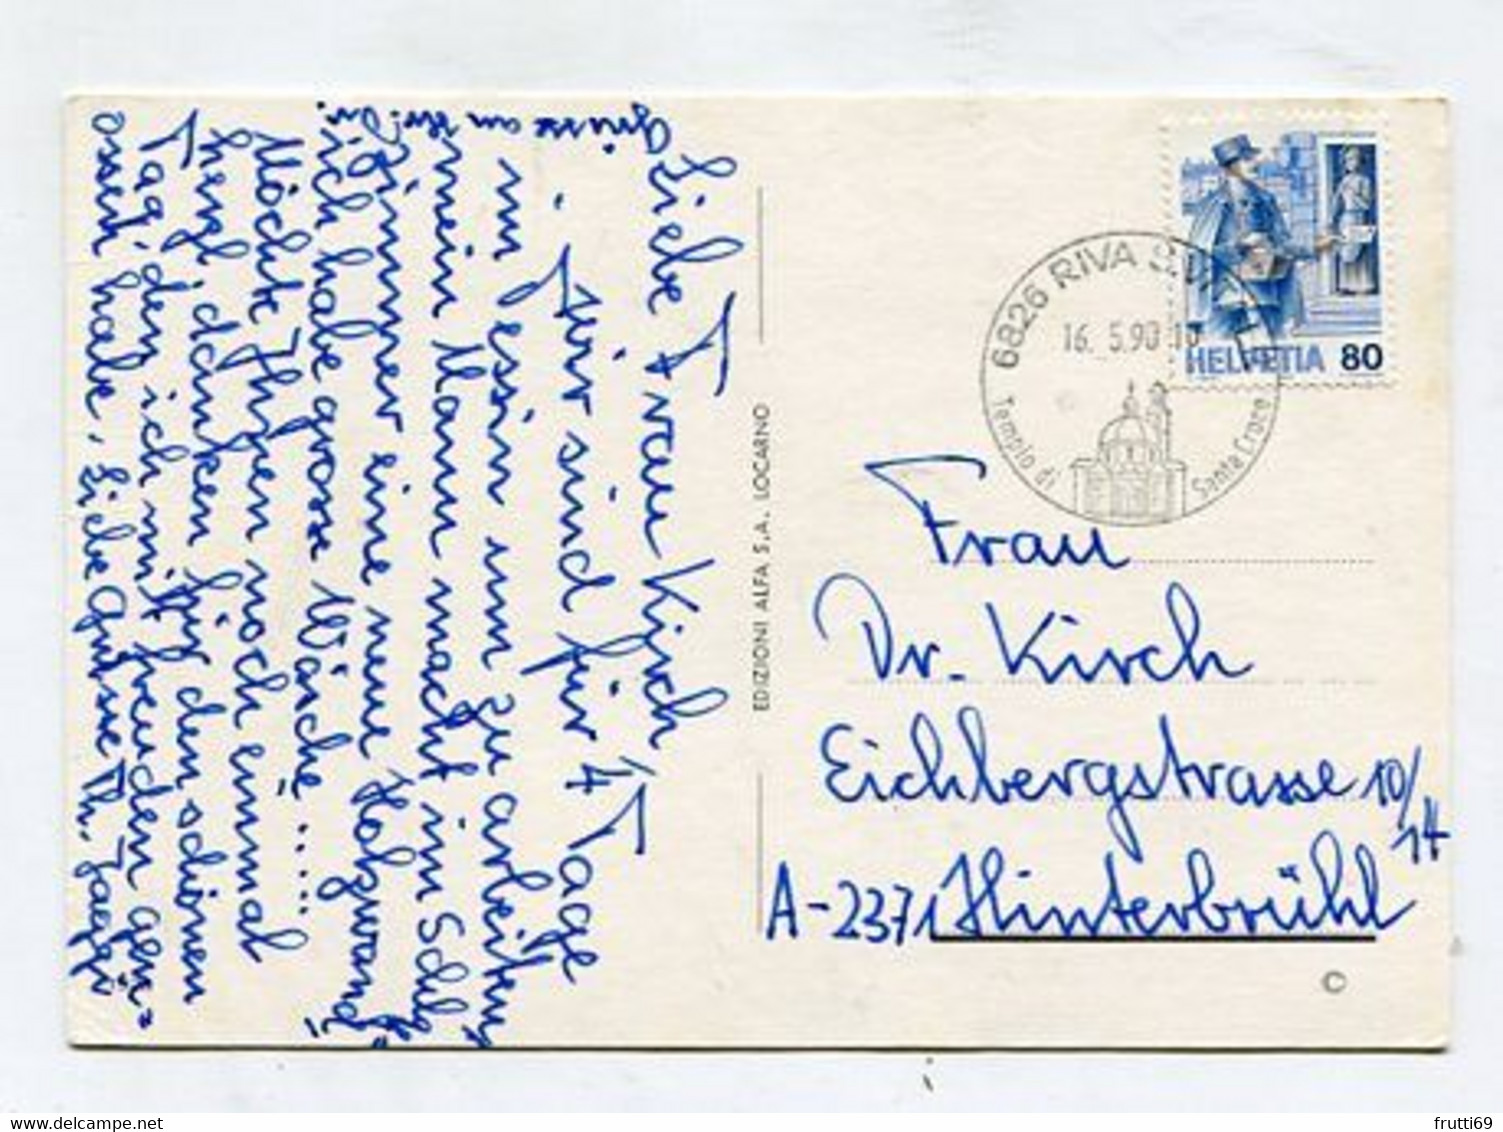 Liebe Frau Kirch!
- Wir sind für 4 Tage
in Tessin um zu arbeiten,
mein Mann macht im Schlaf-
Zimmer eine neue Holzwand,
ich habe grosse Wäsche.....
Möchte Ihnen noch einmal
herzl. danken für den schönen
Tag, den ich mit Freuden gen-
ossen habe. Liebe Grüsse Th. Jäggi
Grüsse an Hr. Dr.
EDIZIONI ALFA S.A. LOCARNO
6826 RIVA S.
16. 5.90
Tempio di Santa Croce
HELVETIA 80
Frau
Dr. Kirch
Eichbergstrasse 10/14
A-2371 Hinterbrühl
©
frutti69